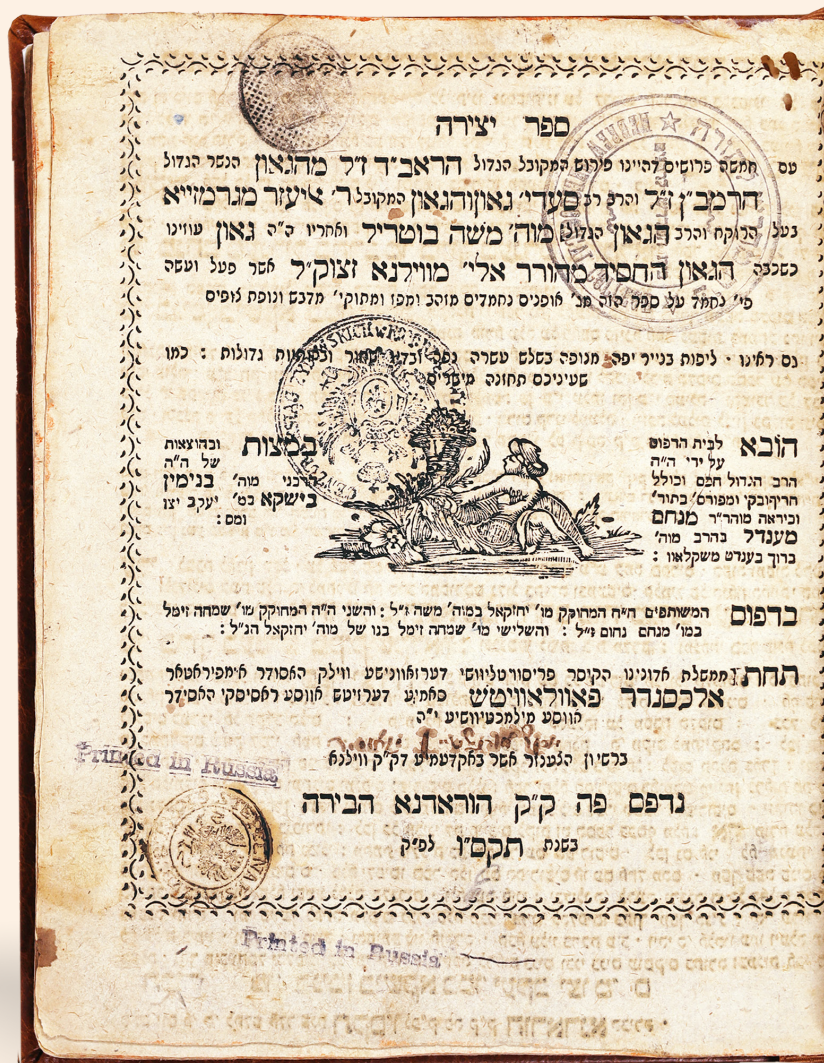 ספר יצירה
עם חמשה פרושים להיינו פירוש המקובל הגדול הראב״ד ז״ל מהגאון הנשר הגדול
הרמב״ן ז״ל והרב רב סעדי׳ גאון והגאון המקובל ר׳ אליעזר מגרמזייא
בעל הרוקח והרב הגאון הגדול מוה׳ משה בוטריל ואחריו ה״ה גאון עוזינו
כשכבה הגאון החסיד מהורר אלי׳ מווילנא זצוק״ל אשר פעל ועשה
פי׳ נחמד על ספר הזה מב׳ אופנים נחמדים מזהב ומפז ומתוקי׳ מדבש ונופת צופים
גם ראינו · ליפות בנייר יפה מנופה בשלש עשרה נפה ובדיו שחור ובאותיות גדולות : כמו
שעיניכם תחזנה מישרים
הובא לבית הדפוס
על ידי ה״ה
הרב הגדול חכם וכולל
חריף ובקי ומפורס׳ בתור׳
וביראה מוהר״ר מנחם
מענדל בהרב מוה׳
ברוך בענדט משקלאוו :
במצות ובהוצאות
של ה״ה
הרבני מוה׳ בנימין
בישקא במ׳ יעקב יצו
ומס :
בדפוס המשותפים ה״ה המחוקק מו׳ יחזקאל במוה׳ משה ז״ל : והשני ה״ה המחוקק מו׳ שמחה זימל
במו׳ מנחם נחום ז״ל : והשלישי מו׳ שמחה זימל בנו של מוה׳ יחזקאל הנ״ל :
תחת ממשלת אדונינו הקיסר פריסוויטליוושי דערזאוונישע ווילק האסודר אימפיראטאר
אלכסנדר פאוולאוויטש סאמיע דערזיטש אווסע ראסיסקי האסידר
אווסע מילסטיוושיע י״ה
ברשיון הצענזר אשר באקדעמיע דק״ק ווילנא
נדפס פה ק״ק הוראדנא הבירה
בשנת תקס״ו לפ״ק
Printed in Russia
Printed in Russia